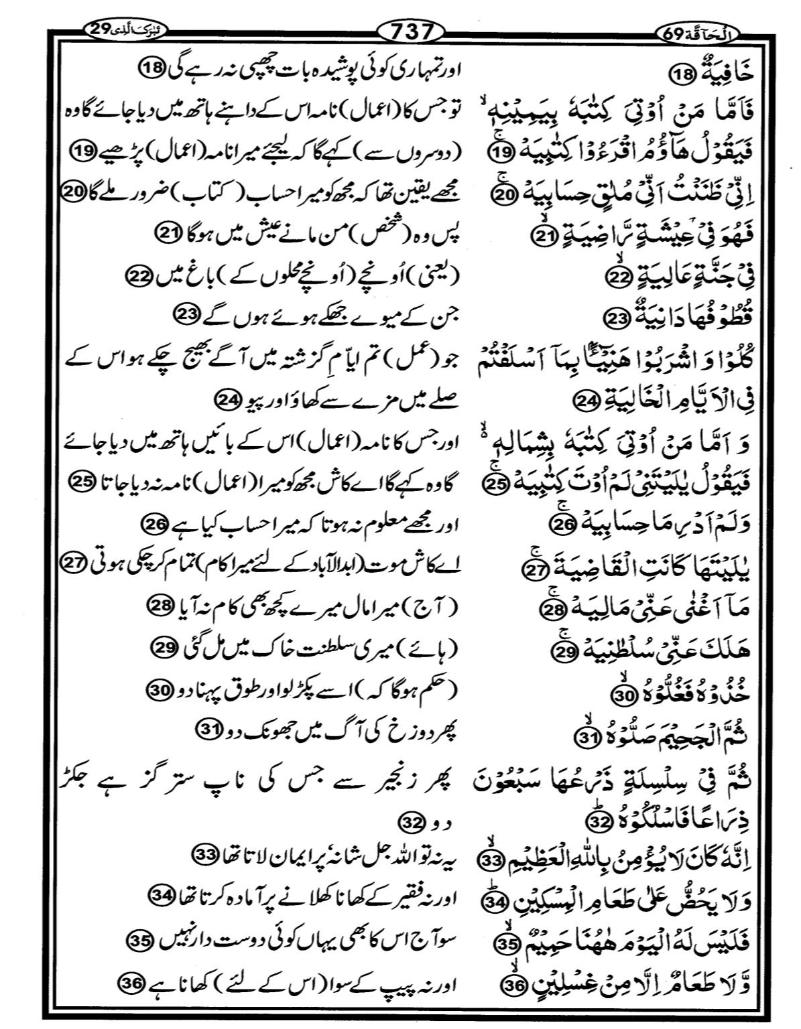 اَلْحَآقَّة 69 737 تَبٰرَكَ الَّذِی 29
خَافِيَةٌ ﴿18﴾ اور تمہاری کوئی پوشیدہ بات چھپی نہ رہے گی ﴿18﴾
فَاَمَّا مَنْ اُوْتِیَ كِتٰبَهٗ بِيَمِيْنِهٖ ۙ تو جس کا (اعمال) نامہ اس کے داہنے ہاتھ میں دیا جائے گا وہ
فَيَقُوْلُ هَآؤُمُ اقْرَءُوْا كِتٰبِيَهْ ۚ ﴿19﴾ (دوسروں سے) کہے گا کہ لیجئے میرا نامہ (اعمال) پڑھیے ﴿19﴾
اِنِّیْ ظَنَنْتُ اَنِّیْ مُلٰقٍ حِسَابِيَهْ ۚ ﴿20﴾ مجھے یقین تھا کہ مجھ کو میرا حساب (کتاب) ضرور ملے گا ﴿20﴾
فَهُوَ فِیْ عِيْشَةٍ رَّاضِيَةٍ ۙ ﴿21﴾ پس وہ (شخص) من مانے عیش میں ہوگا ﴿21﴾
فِیْ جَنَّةٍ عَالِيَةٍ ۙ ﴿22﴾ (یعنی) اُونچے (اُونچے محلوں کے) باغ میں ﴿22﴾
قُطُوْفُهَا دَانِيَةٌ ﴿23﴾ جن کے میوے جھکے ہوئے ہوں گے ﴿23﴾
كُلُوْا وَ اشْرَبُوْا هَنِيْٓـــًٔۢا بِمَاۤ اَسْلَفْتُمْ جو (عمل) تم ایّامِ گزشتہ میں آگے بھیج چکے ہو اس کے
فِی الْاَيَّامِ الْخَالِيَةِ ﴿24﴾ صلے میں مزے سے کھاؤ اور پیو ﴿24﴾
وَ اَمَّا مَنْ اُوْتِیَ كِتٰبَهٗ بِشِمَالِهٖ ۙ اور جس کا نامہ (اعمال) اس کے بائیں ہاتھ میں دیا جائے
فَيَقُوْلُ يٰلَيْتَنِیْ لَمْ اُوْتَ كِتٰبِيَهْ ۚ ﴿25﴾ گا وہ کہے گا اے کاش مجھ کو میرا (اعمال) نامہ نہ دیا جاتا ﴿25﴾
وَلَمْ اَدْرِ مَا حِسَابِيَهْ ۚ ﴿26﴾ اور مجھے معلوم نہ ہوتا کہ میرا حساب کیا ہے ﴿26﴾
يٰلَيْتَهَا كَانَتِ الْقَاضِيَةَ ۚ ﴿27﴾ اے کاش موت (ابدالآباد کے لئے میرا کام) تمام کر چکی ہوتی ﴿27﴾
مَاۤ اَغْنٰی عَنِّیْ مَالِيَهْ ۚ ﴿28﴾ (آج) میرا مال میرے کچھ بھی کام نہ آیا ﴿28﴾
هَلَكَ عَنِّیْ سُلْطٰنِيَهْ ۚ ﴿29﴾ (ہائے) میری سلطنت خاک میں مل گئی ﴿29﴾
خُذُوْهُ فَغُلُّوْهُ ۙ ﴿30﴾ (حکم ہوگا کہ) اسے پکڑ لو اور طوق پہنا دو ﴿30﴾
ثُمَّ الْجَحِيْمَ صَلُّوْهُ ۙ ﴿31﴾ پھر دوزخ کی آگ میں جھونک دو ﴿31﴾
ثُمَّ فِیْ سِلْسِلَةٍ ذَرْعُهَا سَبْعُوْنَ پھر زنجیر سے جس کی ناپ ستر گز ہے جکڑ
ذِرَاعًا فَاسْلُكُوْهُ ؕ ﴿32﴾ دو ﴿32﴾
اِنَّهٗ كَانَ لَا يُؤْمِنُ بِاللّٰهِ الْعَظِيْمِ ۙ ﴿33﴾ یہ نہ تو اللہ جل شانہٗ پر ایمان لاتا تھا ﴿33﴾
وَلَا يَحُضُّ عَلٰی طَعَامِ الْمِسْكِيْنِ ؕ ﴿34﴾ اور نہ فقیر کے کھانا کھلانے پر آمادہ کرتا تھا ﴿34﴾
فَلَيْسَ لَهُ الْيَوْمَ هٰهُنَا حَمِيْمٌ ۙ ﴿35﴾ سو آج اس کا بھی یہاں کوئی دوست دار نہیں ﴿35﴾
وَّلَا طَعَامٌ اِلَّا مِنْ غِسْلِيْنٍ ۙ ﴿36﴾ اور نہ پیپ کے سوا (اس کے لئے) کھانا ہے ﴿36﴾